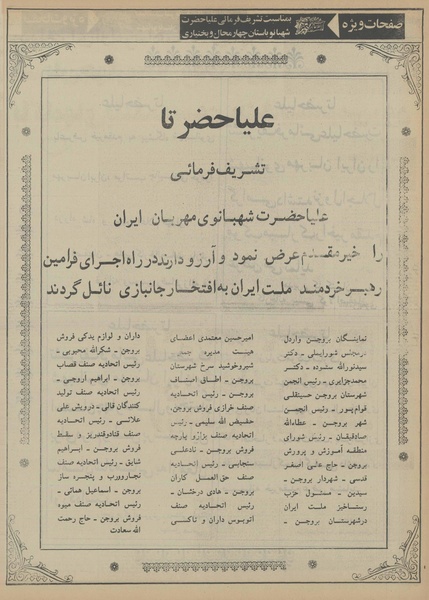 صفحات ویژه
بمناسبت تشریف فرمائی علیاحضرت
شهبانو باستان چهارمحال و بختیاری
علیاحضرتا
تشریف فرمائی
علیاحضرت شهبانوی مهربان ایران
را خیرمقدم عرض نمود و آرزو دارند در راه اجرای فرامین
رهبر خردمند ملت ایران به افتخار جانبازی نائل گردند
نمایندگان بروجن و اردل
در مجلس شورایملی - دکتر
سیدنورالله ستوده - دکتر
محمد جزایری - رئیس انجمن
شهرستان بروجن حسینقلی
قوام پور - رئیس انجمن
شهر بروجن - عطاءالله
صادقیان - رئیس شورای
منطقه آموزش و پرورش
بروجن - حاج علی اصغر
قدسی - شهردار بروجن -
سیدین - مسئول حزب
رستاخیز ملت ایران
در شهرستان بروجن -
امیرحسین معتمدی اعضای
هیئت مدیره جمعیت
شیروخورشید سرخ شهرستان
بروجن - اطاق اصناف
بروجن - رئیس اتحادیه
صنف خرازی فروش بروجن -
حفیض الله سلیمی - رئیس
اتحادیه صنف بزاز و پارچه
فروش بروجن - نادعلی
سنجابی - رئیس اتحادیه
صنف حق العمل کاران
بروجن - هادی درخشان -
رئیس اتحادیه صنف
اتوبوس داران و تاکسی
داران و لوازم یدکی فروش
بروجن - شکرالله محبوبی -
رئیس اتحادیه صنف قصاب
بروجن - ابراهیم اروجی -
رئیس اتحادیه صنف تولید
کنندگان قالی - درویش علی
علائی - رئیس اتحادیه
صنف قناد و قندریز و سقط
فروش بروجن - ابراهیم
شایق - رئیس اتحادیه صنف
نجار و درب و پنجره ساز
بروجن - اسماعیل همائی -
رئیس اتحادیه صنف میوه
فروش بروجن - حاج رحمت
الله سعادت